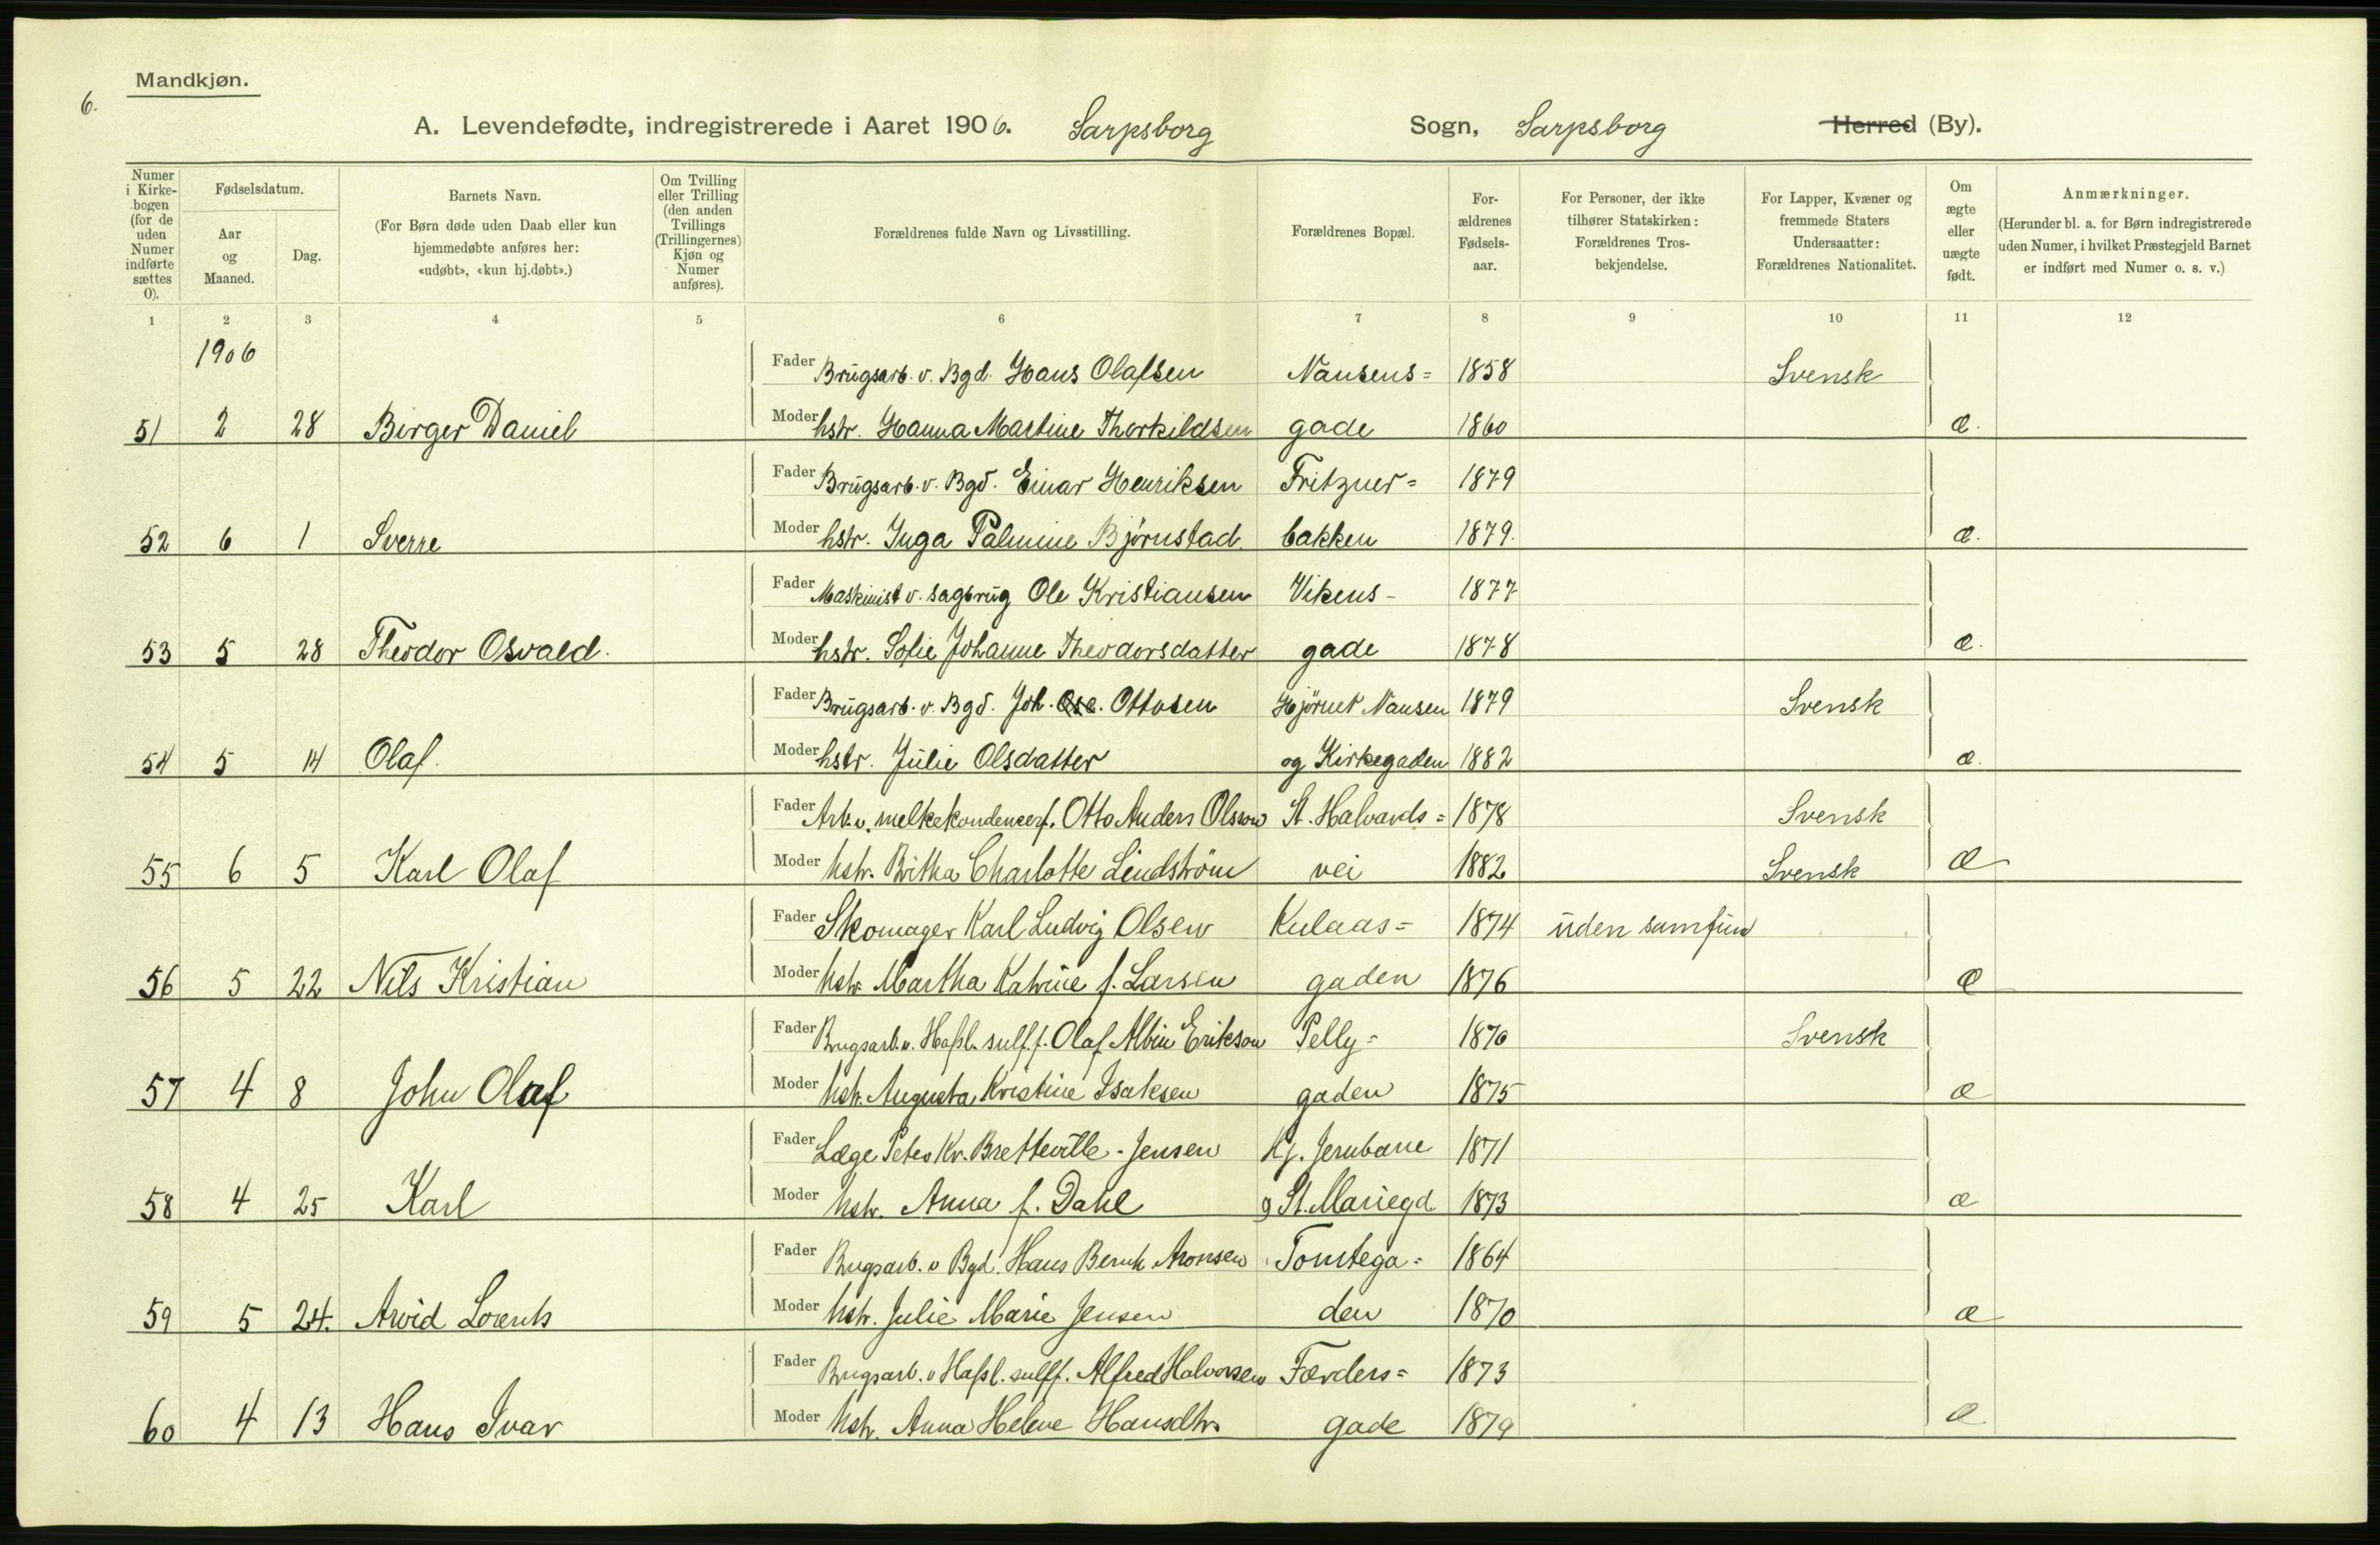 Mandkjøn.
6.
A. Levendefødte, indregistrerede i Aaret 1906. Sarpsborg Sogn, Sarpsborg Herred (By).
Numer i Kirkebogen (for de uden Numer indførte sættes 0).
Fødselsdatum.
Aar og Maaned.
Dag.
Barnets Navn.
(For Børn døde uden Daab eller kun hjemmedøbte anføres her: «udøbt», «kun hj.døbt».)
Om Tvilling eller Trilling (den anden Tvillings (Trillingernes) Kjøn og Numer anføres).
Forældrenes fulde Navn og Livsstilling.
Forældrenes Bopæl.
For-ældrenes Fødsels-aar.
For Personer, der ikke tilhører Statskirken: Forældrenes Tros-bekjendelse.
For Lapper, Kvæner og fremmede Staters Undersaatter: Forældrenes Nationalitet.
Om ægte eller uægte født.
Anmærkninger.
(Herunder bl. a. for Børn indregistrerede uden Numer, i hvilket Præstegjeld Barnet er indført med Numer o. s. v.)
1 2 3 4 5 6 7 8 9 10 11 12
1906
Fader Brugsarb. v. Bgd. Hans Olafsen Nansens= 1858 Svensk
51 2 28 Birger Daniel Moder hstr. Hanna Martine Thorkildsen gade 1860 æ.
Fader Brugsarb. v. Bgd. Einar Henriksen Fritzner= 1879
52 6 1 Sverre Moder hstr. Inga Palmine Bjørnstad. bakken 1879. æ.
Fader Maskinist v. sagbrug Ole Kristiansen Vikens- 1877
53 5 28 Theodor Osvald. Moder hstr. Sofie Johanne Theodorsdatter gade 1878 æ.
Fader Brugsarb. v. Bgd. Joh. Osc. Ottosen Hjørnet Nansen 1879 Svensk
54 5 14 Olaf. Moder hstr. Julie Olsdatter og Kirkegaden 1882 æ.
Fader Arb. v. melkekondencerf. Otto Anders Olsson St. Halvards= 1878 Svensk
55 6 5 Karl Olaf Moder hstr. Britha Charlotte Lindström vei 1882 Svensk æ
Fader Skomager Karl Ludvig Olsen Kulaas= 1874 uden samfun
56 5 22 Nils Kristian Moder hstr. Martha Katrine f. Larsen gaden 1876 æ
Fader Brugsarb. v. Hafsl. sulf.f. Olaf Albin Erikson Pelly= 1870 Svensk
57 4 8 John Olaf Moder hstr. Augusta Kristine Isaksen gaden 1875 æ
Fader Læge Peter Kr. Bretteville-Jensen Hj. Jernbane 1871
58 4 25 Karl Moder hstr. Anna f. Dahl g St. Mariegd 1873 æ
Fader Brugsarb. v Bgd. Hans Bernh Aronsen Tomtega= 1864
59 5 24. Arvid Lorents Moder hstr. Julie Marie Jensen den 1870 æ
Fader Brugsarb. v Hafsl. sulff. Alfred Halvorsen Færders= 1873
60 4 13 Hans Ivar Moder hstr. Anna Helene Hansdtr. gade 1879 æ